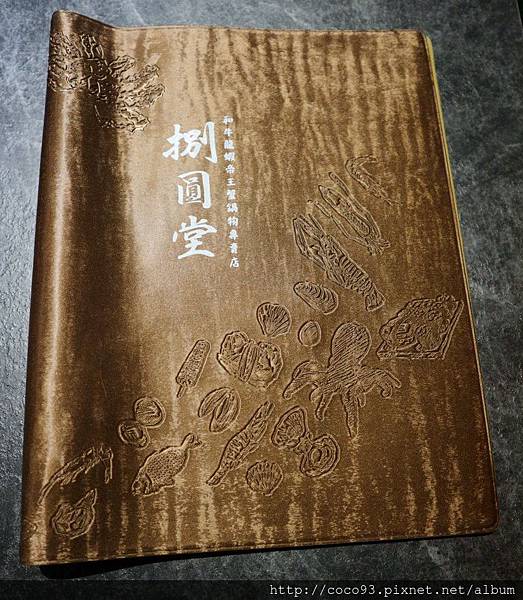 和牛龍蝦帝王蟹鍋物專賣店
捌圓堂
http://coco93.pixnet.net/album